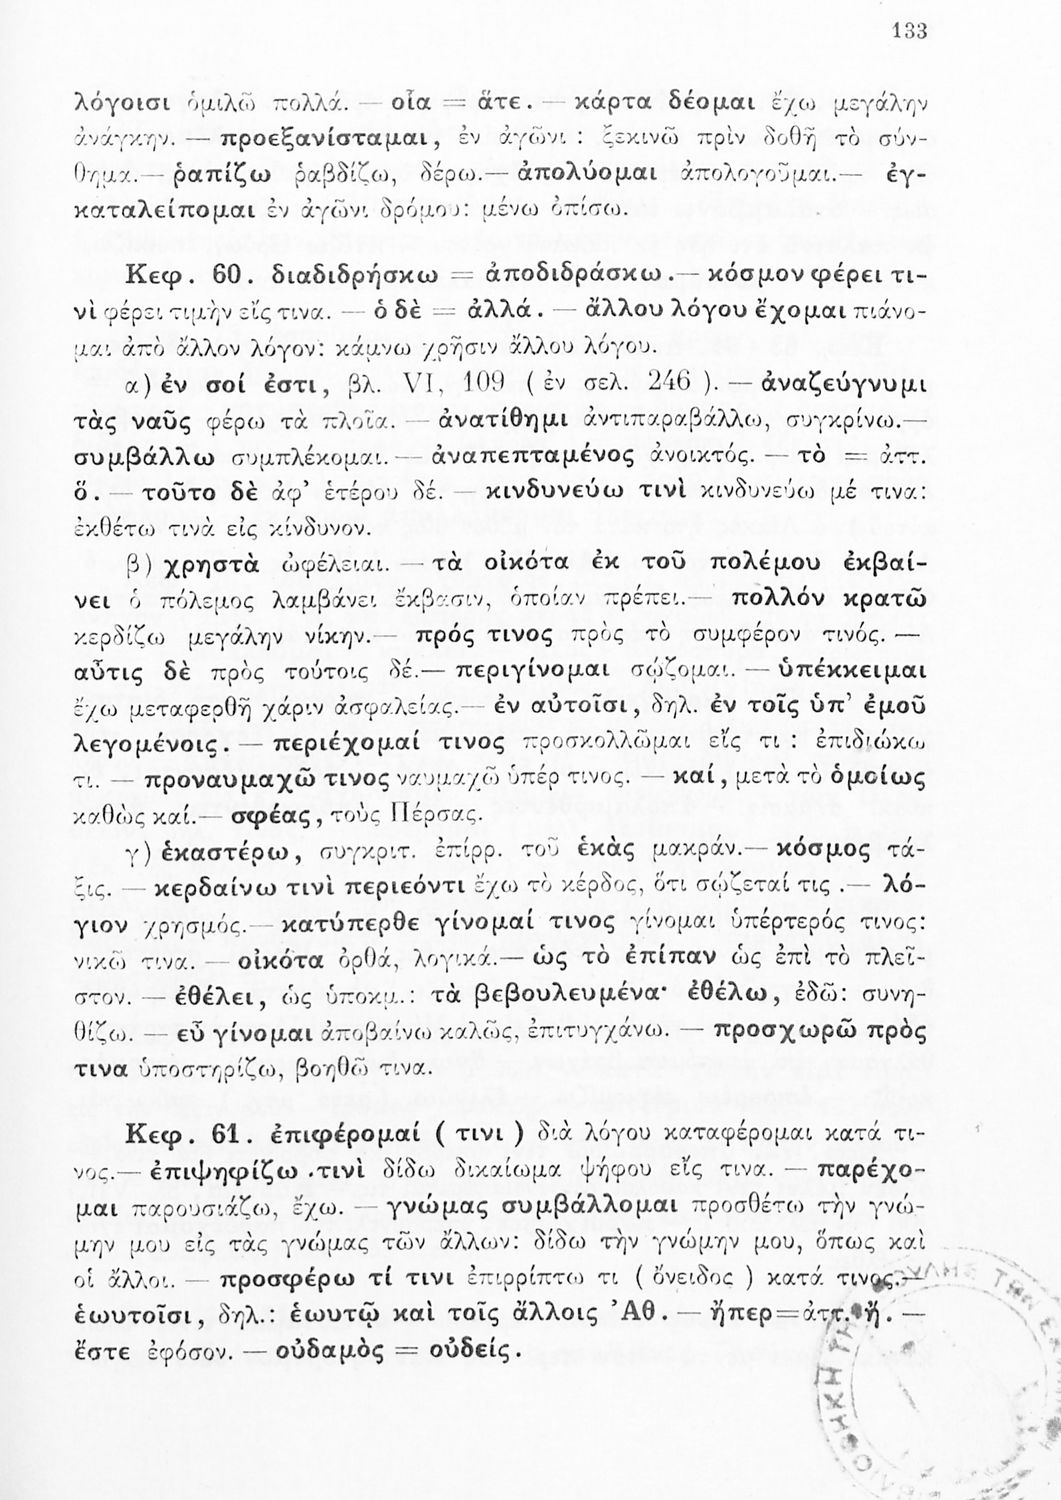 133
λόγοισι ὁμιλῶ πολλά. — οἷα = ἅτε. — κάρτα δέομαι ἔχω μεγάλην
ἀνάγκην. — προεξανίσταμαι, ἐν ἀγῶνι : ξεκινῶ πρὶν δοθῇ τὸ σύν-
θημα.— ῥαπίζω ῥαβδίζω, δέρω.— ἀπολύομαι ἀπολογοῦμαι.— ἐγ-
καταλείπομαι ἐν ἀγῶνι δρόμου: μένω ὀπίσω.
Κεφ. 60. διαδιδρήσκω = ἀποδιδράσκω.— κόσμον φέρει τι-
νὶ φέρει τιμὴν εἴς τινα. — ὁ δὲ = ἀλλά. — ἄλλου λόγου ἔχομαι πιάνο-
μαι ἀπὸ ἄλλον λόγον: κάμνω χρῆσιν ἄλλου λόγου.
α) ἐν σοί ἐστι, βλ. VI, 109 ( ἐν σελ. 246 ). — ἀναζεύγνυμι
τὰς ναῦς φέρω τὰ πλοῖα. — ἀνατίθημι ἀντιπαραβάλλω, συγκρίνω.—
συμβάλλω συμπλέκομαι.— ἀναπεπταμένος ἀνοικτός. — τὸ = ἀττ.
ὅ. — τοῦτο δὲ ἀφ’ ἑτέρου δέ. — κινδυνεύω τινὶ κινδυνεύω μέ τινα:
ἐκθέτω τινὰ εἰς κίνδυνον.
β) χρηστὰ ὠφέλειαι. — τὰ οἰκότα ἐκ τοῦ πολέμου ἐκβαί-
νει ὁ πόλεμος λαμβάνει ἔκβασιν, ὁποίαν πρέπει.— πολλόν κρατῶ
κερδίζω μεγάλην νίκην.— πρός τινος πρὸς τὸ συμφέρον τινός. —
αὖτις δὲ πρὸς τούτοις δέ.— περιγίνομαι σῴζομαι. — ὑπέκκειμαι
ἔχω μεταφερθῆ χάριν ἀσφαλείας.— ἐν αὐτοῖσι, δηλ. ἐν τοῖς ὑπ’ ἐμοῦ
λεγομένοις. — περιέχομαί τινος προσκολλῶμαι εἴς τι : ἐπιδιώκω
τι. — προναυμαχῶ τινος ναυμαχῶ ὑπέρ τινος. — καί, μετὰ τὸ ὁμοίως
καθὼς καί.— σφέας, τοὺς Πέρσας.
γ) ἑκαστέρω, συγκριτ. ἐπίρρ. τοῦ ἑκὰς μακράν.— κόσμος τά-
ξις. — κερδαίνω τινὶ περιεόντι ἔχω τὸ κέρδος, ὅτι σῴζεταί τις .— λό-
γιον χρησμός.— κατύπερθε γίνομαί τινος γίνομαι ὑπέρτερός τινος:
νικῶ τινα. — οἰκότα ὀρθά, λογικά.— ὡς τὸ ἐπίπαν ὡς ἐπὶ τὸ πλεῖ-
στον. — ἐθέλει, ὡς ὑποκμ.: τὰ βεβουλευμένα· ἐθέλω, ἐδῶ: συνη-
θίζω. — εὖ γίνομαι ἀποβαίνω καλῶς, ἐπιτυγχάνω. — προσχωρῶ πρὸς
τινα ὑποστηρίζω, βοηθῶ τινα.
Κεφ. 61. ἐπιφέρομαί ( τινι ) διὰ λόγου καταφέρομαι κατά τι-
νος.— ἐπιψηφίζω .τινὶ δίδω δικαίωμα ψήφου εἴς τινα. — παρέχο-
μαι παρουσιάζω, ἔχω. — γνώμας συμβάλλομαι προσθέτω τὴν γνώ-
μην μου εἰς τὰς γνώμας τῶν ἄλλων: δίδω τὴν γνώμην μου, ὅπως καὶ
οἱ ἄλλοι. — προσφέρω τί τινι ἐπιρρίπτω τι ( ὄνειδος ) κατά τινος.—
ἑωυτοῖσι, δηλ.: ἑωυτῷ καὶ τοῖς ἄλλοις Ἀθ. — ἤπερ=ἀττ. ἤ. —
ἔστε ἐφόσον. — οὐδαμὸς = οὐδείς.